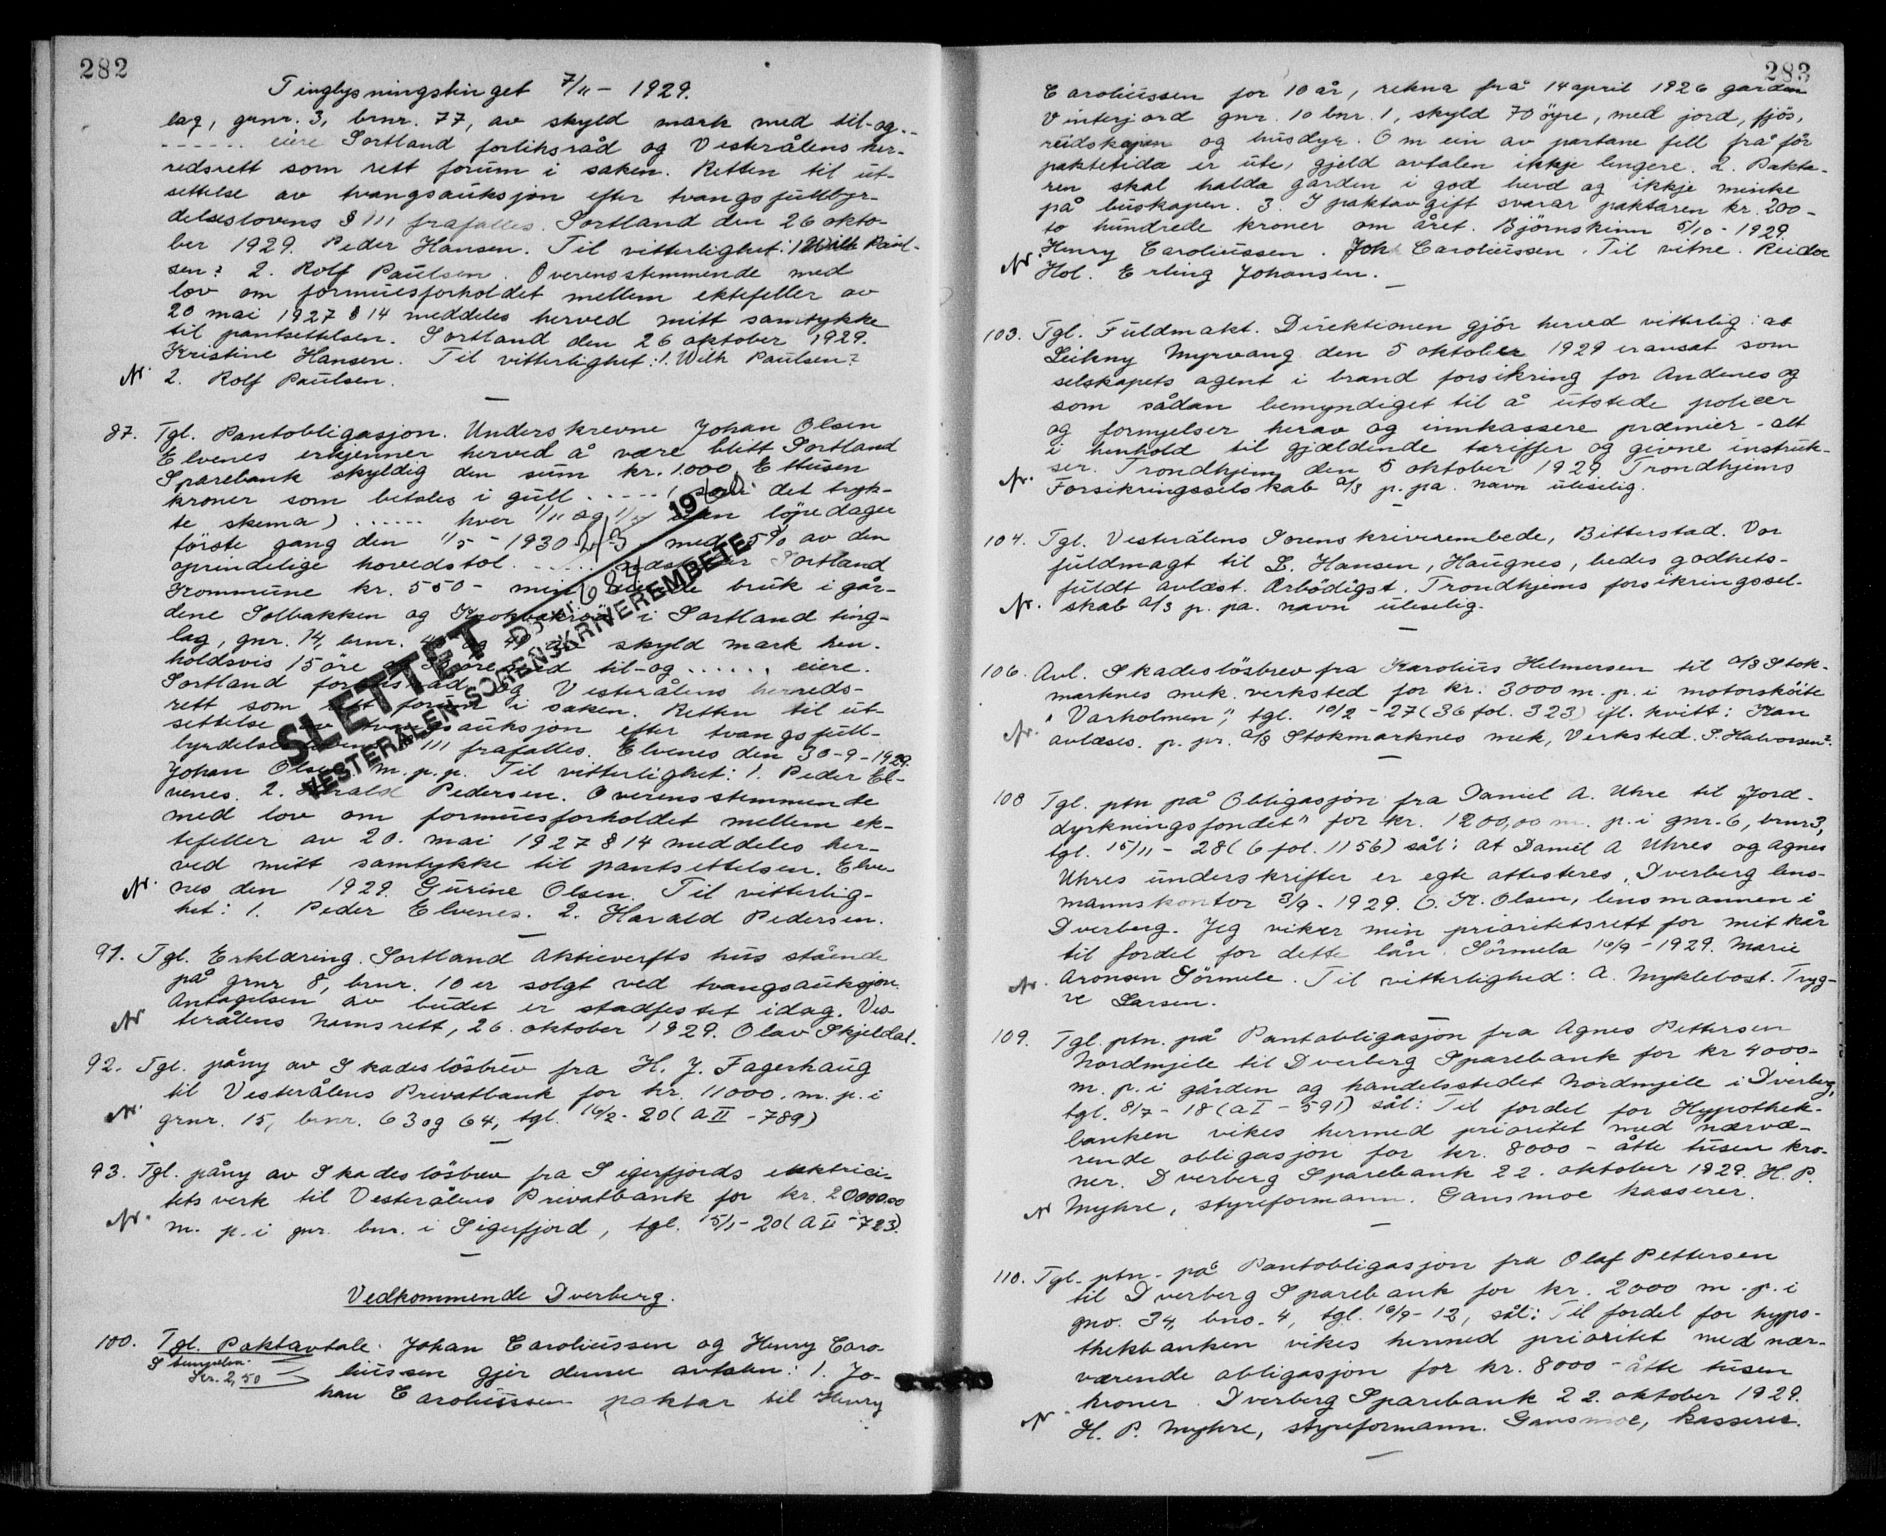 282
Tinglysningstinget 7/11 - 1929.
lag, grnr. 3, brnr. 77, av skyld mark med til-og..
...... eiere Sortland forliksråd og Vesterålens her-
redsrett som rett forum i saken. Retten til ut-
settelse av tvangsauksjon efter tvangsfullbyr-
delseslovens § 111 frafalles. Sortland den 26 okto-
ber 1929. Peder Hansen. Til vitterlighet: 1 Wilh Paul-
sen? 2. Rolf Paulsen. Overensstemmende med
lov om formuesforholdet mellem ektefeller av
20 mai 1927 § 14 meddeles herved mitt samtykke
til pantsettelsen. Sortland den 26 oktober 1929.
Kristine Hansen. Til vitterlighet: 1. Wilh Paulsen?
N. 2. Rolf Paulsen.
87. Tgl. Pantobligasjon. Underskrevne Johan Olsen
Elvenes erkjenner herved å være blitt Sortland
Sparebank skyldig den sum kr. 1.000 Ettusen
kroner som betales i gull ..... ( som det tryk-
te skema) ...... hver 1/11 og løpedager
första gang den 1/5 - 1930 med 5% av den
oprindelige hovedstol. ..... Sortland
Kommune kr. 550 - min bruk i går-
dene Solbakken og i Sortland ting-
lag, gnr. 14, brnr. skyld mark hen-
holdsvis 15 øre til-og ...... eiere.
Sortland forliksråd og Vesterålens herreds-
rett som rett forum i saken. Retten til ut
settelse av tvangsauksjon efter tvangsfull-
byrdelseslovens § 111 frafalles. Elvenes den 30-9-1929.
Johan Olsen m. p. p. Til vitterlighet: 1. Peder El-
venes. 2. Harald Pedersen. Overensstemmende
med lov om formuesforholdet mellem ek-
tefeller av 20. mai 1927 § 14 meddeles her-
ved mitt samtykke til pantsettelsen. Elve-
N. nes den 1929. Gurine Olsen. Til vitterlig-
het: 1. Peder Elvenes. 2. Harald Pedersen.
SLETTET
Dagbnr. 684 2/3 1960.
VESTERÅLEN SORENSKRIVEREMBETE
91. Tgl. Erklæring. Sortland Aktieverfts hus stående
på grnr 8, brnr. 10 er solgt ved tvangsauksjon.
Antagelsen av budet er stadfestet idag. Ves-
N terålens Namsrett, 26. oktober 1929. Olav Skjeldal.
92. Tgl. påny av Skadesløsbrev fra H. J. Fagerhaug
til Vesterålens Privatbank for kr. 11000. m. p. i
N. grnr. 15, brnr. 63 og 64, tgl. 16/2 - 20 (A II - 789)
93. Tgl. påny av Skadesløsbrev fra Sigerfjords elektrici-
tetsverk til Vesterålens Privatbank for kr. 20000.00
N. m. p. i gnr. bnr. i Sigerfjord, tgl. 15/1 - 20 (A II - 723).
Vedkommende Dverberg.
100. Tgl. Paktavtale. Johan Caroliussen og Henry Caro-
Stempelm. Kr. 2,50 liussen gjer denne avtalen: 1. Jo-
han Caroliussen paktar til Henry
283
Caroliussen for 10 år, rekna frå 14 april 1926 garden
Vinterjord gnr. 10 bnr. 1, skyld 70 öyre, med jord, fjös,
reidskapen og husdyr. Om ein av partane fell frå för
paktetida er ute, gjeld avtalen ikkje lengere. 2. Pakta-
ren skal halda garden i god hevd og ikkje minke
på buskapen. 3. I paktavgift svarar paktaren kr. 200 -
to hundrede kroner om året. Björnskinn 5/10 - 1929.
Henry Caroliussen. Joh Caroliussen. Til vitne. Reidar
N. Hol. Erling Johansen.
103. Tgl. Fuldmakt. Direktionen gjör herved vitterlig: at
Leikny Myrvang den 5 oktober 1929 er ansat som
selskapets agent i brand forsikring for Andenes og
som sådan bemyndiget til å utstede policer
og fornyelser herav og innkassere præmier - alt
i henhold til gjældende tariffer og givne instruk-
ser. Trondhjem den 5 oktober 1929. Trondhjems
N. Forsikringsselskab A/S p. pa. navn uleselig.
104. Tgl. Vesterålens Sorenskriverembede, Bitterstad. Vor
fuldmagt til L. Hansen, Haugnes, bedes godhets-
fuldt avlæst. Ærbödigst. Trondhjems forsikringssel-
N. skab A/S p. pa. navn uleselig.
106. Avl. Skadeslösbrev fra Karolius Helmersen til A/S Stok-
marknes mek. verksted for kr. 3000 m. p. i motorsköite
"Varholmen", tgl. 10/2 - 27 (36 fol. 323) ifl. kvitt: Kan
N. avlæses. p. pr. A/S Stokmarknes mek, Verksted. S. Halvorsen?.
108 Tgl. ptn på Obligasjon fra Daniel A. Uhre til "Jord-
dyrkningsfondet" for kr. 1200,00 m. p. i gnr. 6, brnr 3,
tgl. 15/11 - 28 (6 fol. 1156) sål: At Daniel A Uhres og Agnes
Uhres underskrifter er egte attesteres. Dverberg lens-
mannskontor 3/9 - 1929. O. K. Olsen, lensmannen i
Dverberg. Jeg viker min prioritetsrett for mit kår
til fordel for dette lån. Sörmela 16/9 - 1929. Marie
N. Aronsen Sörmele. Til vitterlighed: A. Myklebost. Tryg-
ve Larsen.
109. Tgl. ptn. på Pantobligasjon fra Agnes Pettersen
Nordmjele til Dverberg Sparebank for kr 4000 -
m. p. i gården og handelsstedet Nordmjele i Dverberg,
tgl. 8/7 - 18 (A I - 591) sål: Til fordel for Hypothek-
banken vikes hermed prioritet med nærvæ-
rende obligasjon for kr. 8000 - åtte tusen kro-
ner. Dverberg Sparebank 22. oktober 1929. H. P.
N Myhre, styreformann. Gansmoe kasserer.
110. Tgl. ptn. på Pantobligasjon fra Olaf Pettersen
til Dverberg Sparebank for kr. 2000 m. p. i
gno. 34, bno. 4, tgl. 16/9 - 12, sål: Til fordel for hypo-
thekbanken vikes hermed prioritet med nær-
værende obligasjon for kr. 8000 - åtte tusen
kroner. Dverberg Sparebank 22. oktober 1929.
N H. P. Myhre, styreformann. Gansmoe, kasserer.